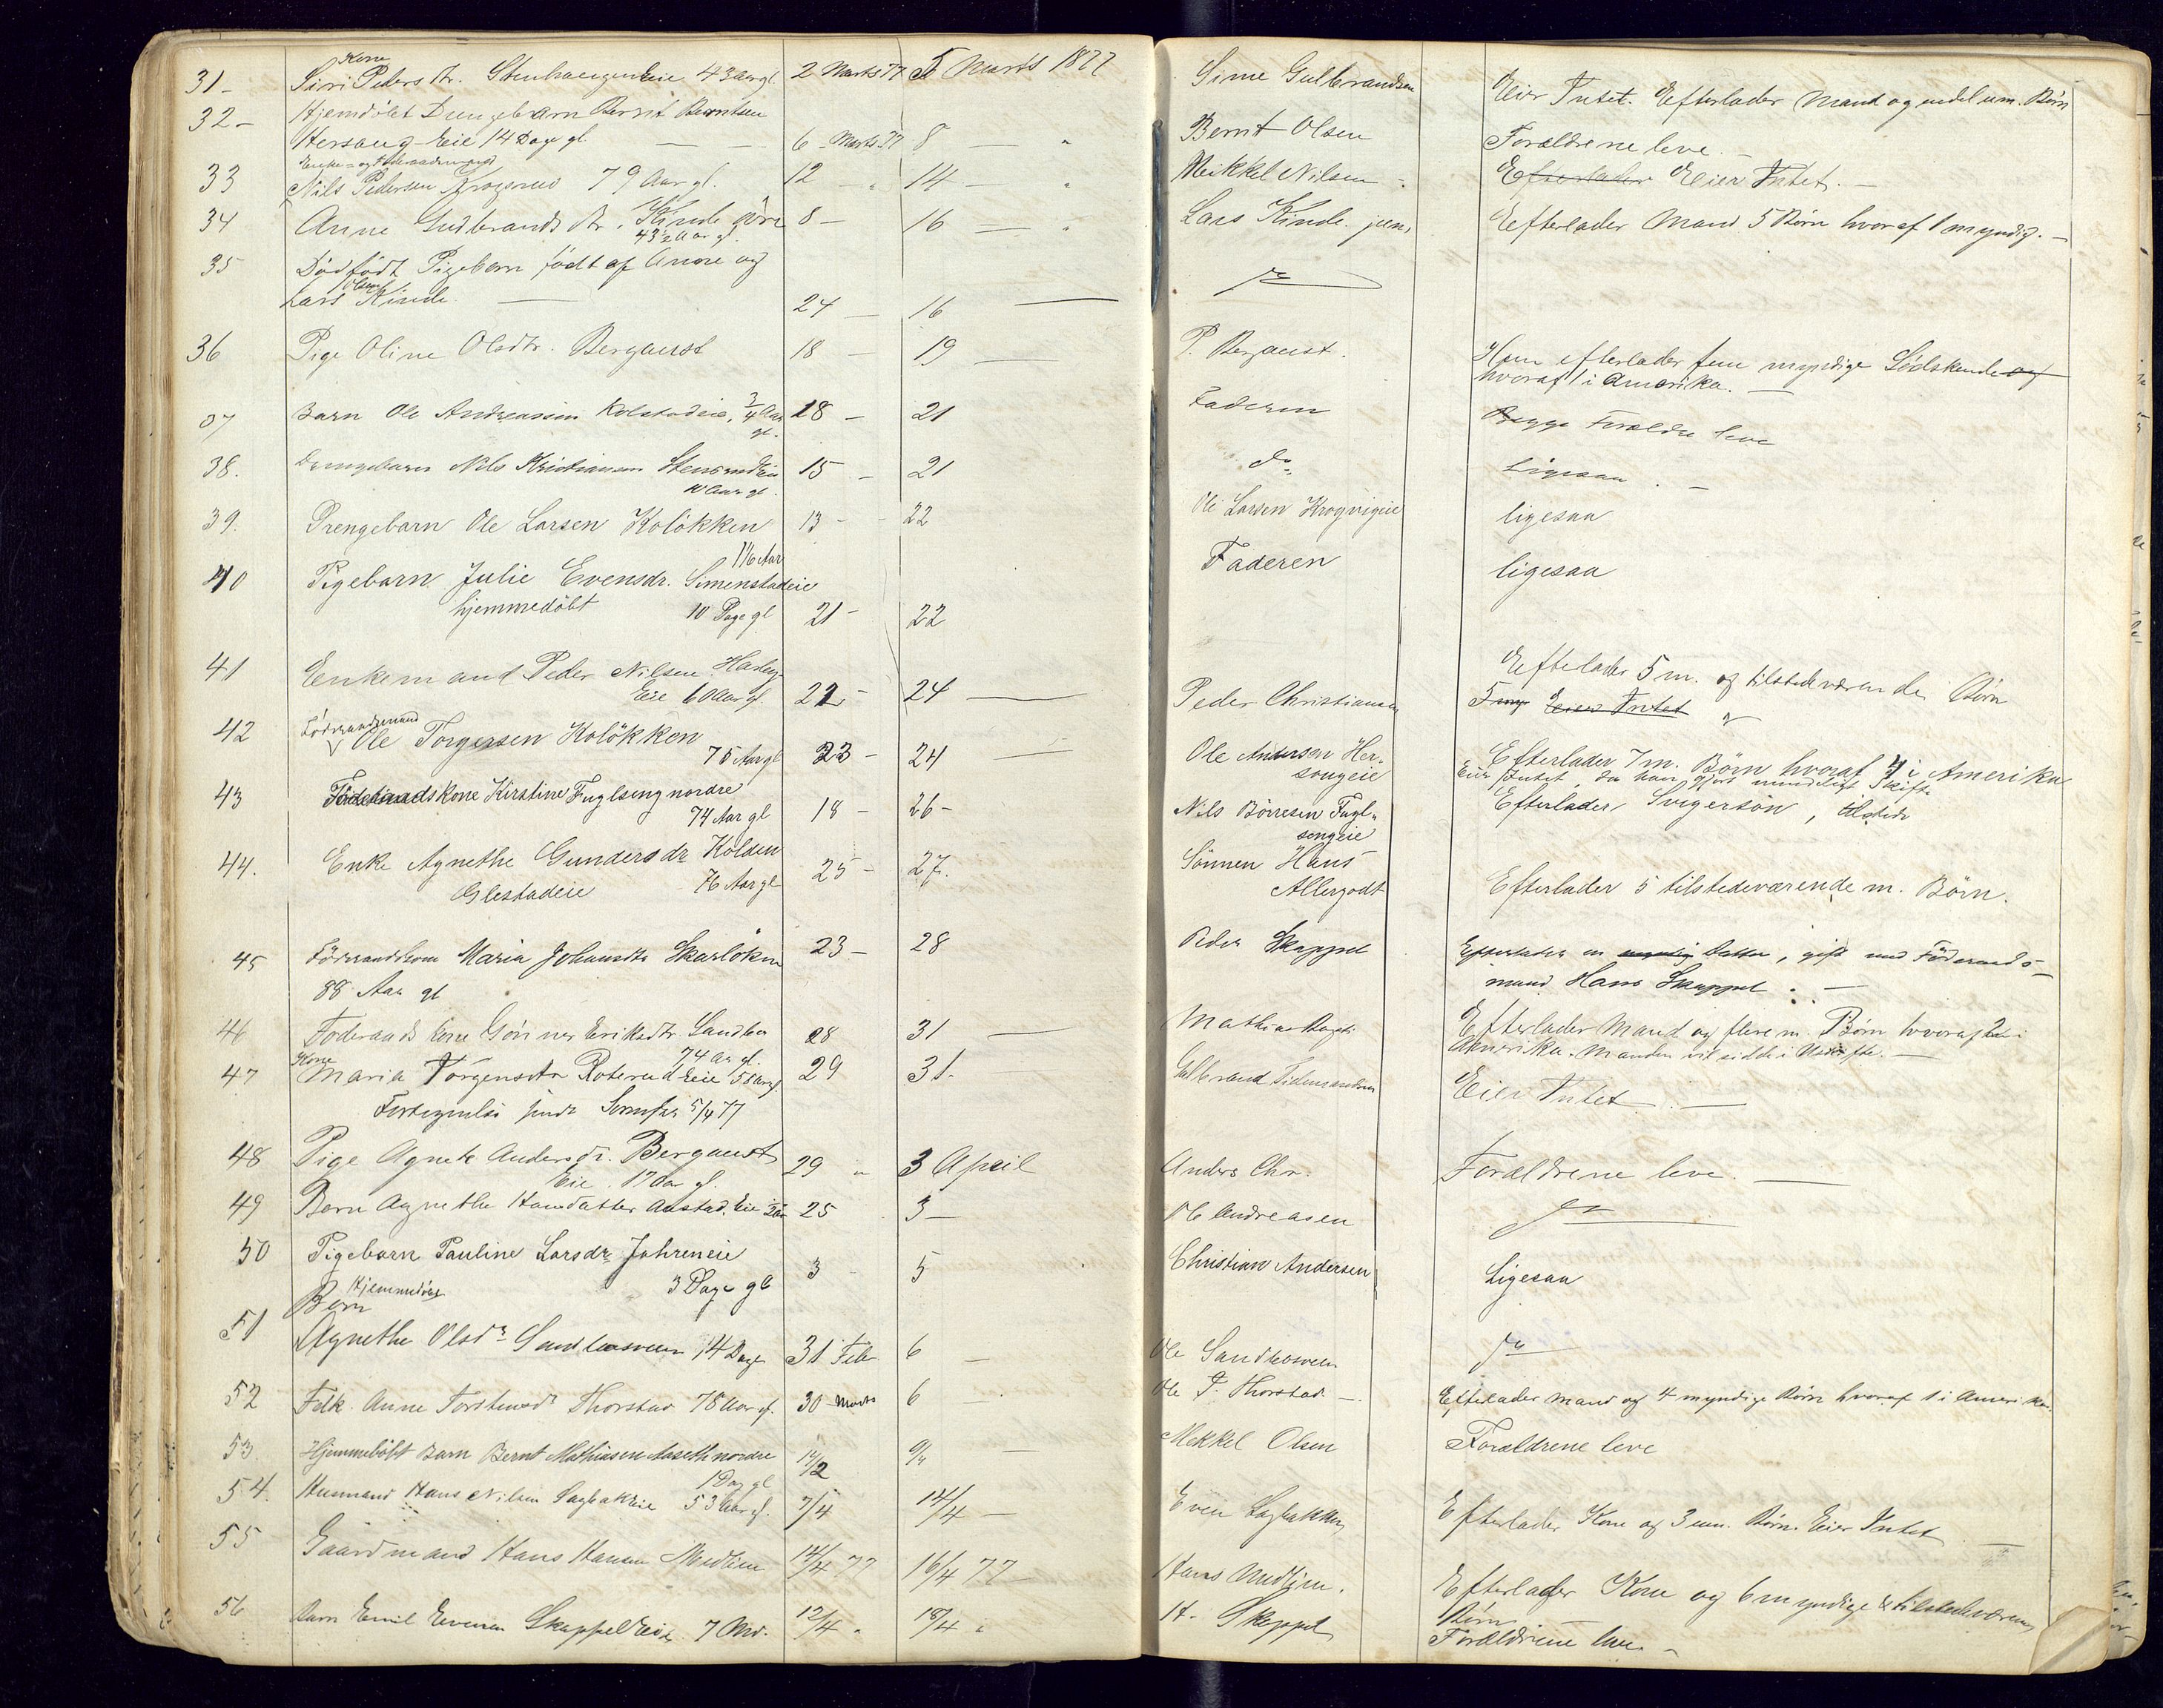 31 - Kone
Siri Peders dr. Eie 43 Aar gl. 2 Marts 77 5 Marts 1877 Sime Gulbrandsen Eier Intet. Efterlader Mand og endel um. Børn
32 - Hjemdöbt Drengebarn Bernt Berntsen
Hersoug Eie 14 Dage gl. 6 - Marts 77 8 — " Bernt Olsen Forældrene leve. —
33 Nils Pedersen 79 Aar gl. 12 - " 14 - " Mikkel Nilsen - Efterlader Eier Intet. —
34 Anne Gudbrands dr. Kinde övre 8 - 16 — " Lars Kinde jun. Efterlader Mand 5 Børn hvoraf 1 myndig. —
43½ Aar gl.
35 Dødfödt Pigebarn födt af Anne og
Lars Olsen Kinde — 24 — 16 — do
36 Pige Oline Olsdtr. Bergaust 18 — 19 — P. Bergaust. Hun efterlader fem myndige Södskende og
hvoraf 1 i Amerika. —
37 Barn Ole Andreassen Kolstadeie, 3/4 Aar gl. 18 - 21 Faderen Begge Forældre leve
38. Drengebarn Nils Kristiansen 15 - 21 do Ligesaa . —
10 Aar gl.
39. Drengebarn Ole Larsen Kolökken 13 - - 22 Ole Larsen Krogvigeie ligesaa
1 1/6 Aar
40 Pigebarn Julie Evensdr. Simenstadeie Faderen ligesaa
hjemmedöbt 10 Dage gl 21 - 22
41 Enkemand Peder Nilsen
Eie 60 Aar gl. 24 — Peder Christiansen Efterlader 5 m. og tilstedeværende Børn
5 my Eier Intet
42 Föderaadsmand
Ole Torgersen Kolökken
75 Aar gl 23 - 24 — Ole Andersen Her-
sougeie Efterlader 7 m. Børn hvoraf 4 i Amerika
Eier Intet, da han gjort mundeligt Skifte
43 Föderaadskone Kirstine Fuglseng nordre
74 Aar gl 18 - 26 - Nils Börresen Fugl-
sengeie Efterlader Svigersön, tilstede
44. Enke Agnethe Gundersdr Kolden
Glestadeie 76 Aar gl 25 - 27. Sönnen Hans
Allergodt Efterlader 5 tilstedeværende m. Börn.
45 Föderaadskone Maria Johannsdtr Skarlöken 23 - 28 Peder Skappel Efterlader en myndig Datter, gift med Föderaads-
88 Aar gl mand Hans Skappel. —
46 Föderaads kone Gönner Eriksdtr. Sandbo 28 31 — Mathias Efterlader Mand og flere m. Børn hvoraf
74 Aar gl. Amerika. Manden vil sidde i Uskifte. —
47 Kone
Maria Torgensdtr Roterud Eie 58 Aar gl. 29 31 - Gulbrand Eier Intet. —
5/4 77
48 Pige Agnete Anders dr. Bergaust 29 " 3 April Anders Chr. Forældrene leve. —
Eie. 17 Aar gl.
49 Barn Agnethe Hansdatter Austad. Eie 25 3 — Ole Andreasen do
50 Pigebarn Pauline Larsdr. Jahreneie
Hjemmedöbt 3 Dage gl 3 - 5 Christian Andersen Ligesaa
51 Barn
Agnethe Olsdr Sandbosveen 14 Dage 31 Feb 6 — Ole Sandbosveen do
52 Fdk. Anne Torstensdr Thorstad 78 Aar gl. 30 - Marts 6 — Ole P. Thorstad — Efterlader Mand og 4 myndige Børn hvoraf 1 i Amerika.
53. Hjemmedöbt Barn Bernt Mathiasen Aaseth nordre 14/2 9/4 — Mekkel Olsen Forældrene leve
1 Dag gl
54. Husmand Hans Nilsen Sagbakeie 53 Aar gl. 7/4 14/4 — Even Sagbakken Efterlader Kone og 3 um. Børn. Eier Intet —
55 Gaardmand Hans Hansen Medlien 14/4 77 16/4 77 — Hans Medlien. Efterlader Kone og 6 myndige & tilstedeværende
Børn
56 Barn Emil Evensen Skappel Eie 7 Md. 12/4 " 18/4 " H. Skappel Forældrene leve. -